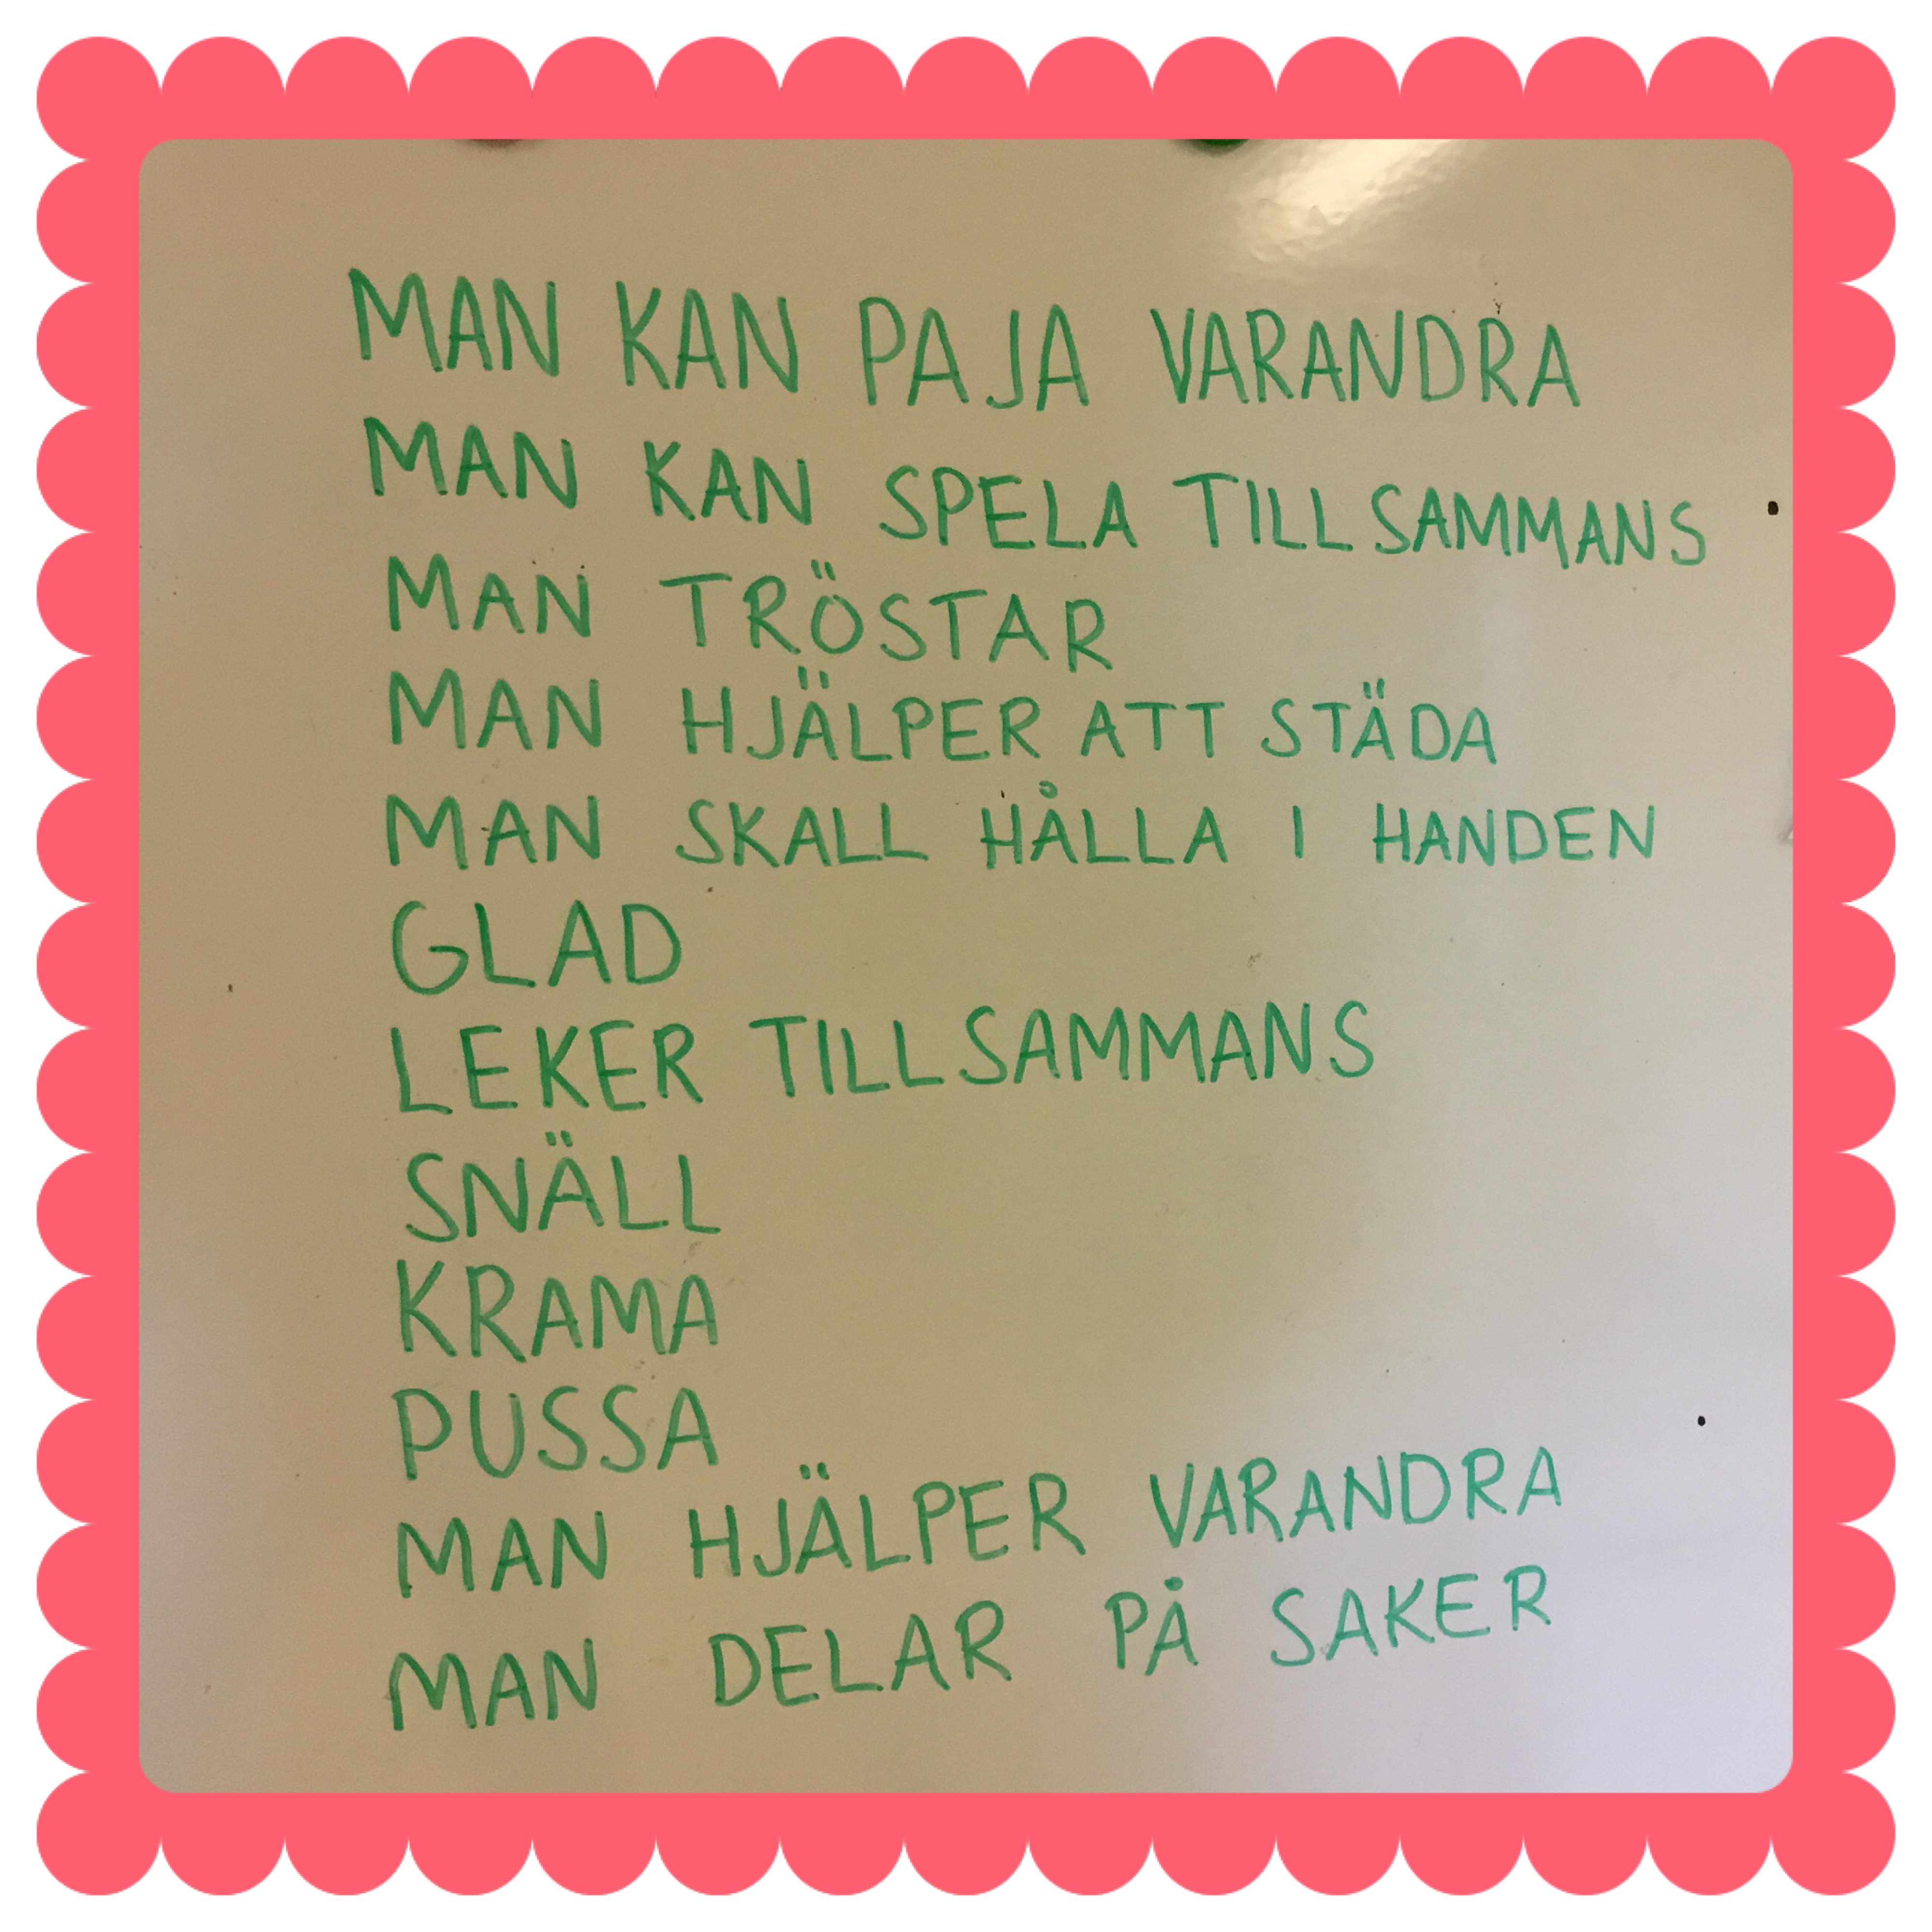 MAN KAN PAJA VARANDRA
MAN KAN SPELA TILLSAMMANS
MAN TRÖSTAR
MAN HJÄLPER ATT STÄDA
MAN SKALL HÅLLA I HANDEN
GLAD
LEKER TILLSAMMANS
SNÄLL
KRAMA
PUSSA
MAN HJÄLPER VARANDRA
MAN DELAR PÅ SAKER